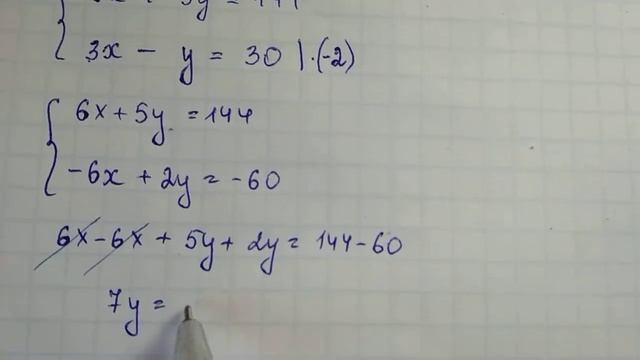 3x - y = 30 | · (-2)
6x + 5y = 144
-6x + 2y = -60
6x - 6x + 5y + 2y = 144 - 60
7y =